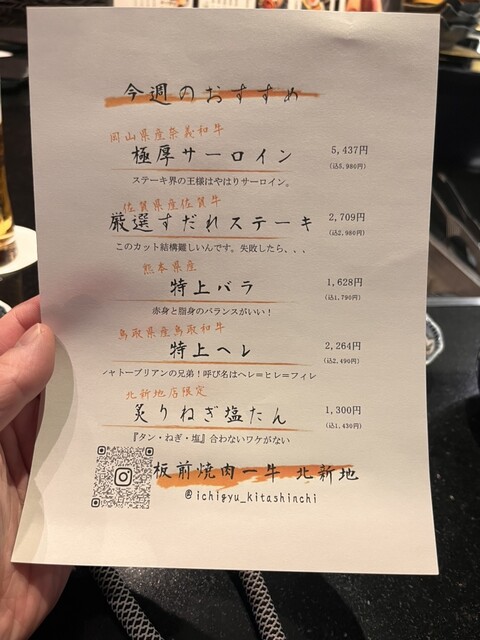 今週のおすすめ
岡山県産奈義和牛
極厚サーロイン 5,437円
(込5,980円)
ステーキ界の王様はやはりサーロイン。
佐賀県産佐賀牛
厳選すだれステーキ 2,709円
(込2,980円)
このカット結構難しいんです。失敗したら、、、
熊本県産
特上バラ 1,628円
(込1,790円)
赤身と脂身のバランスがいい！
鳥取県産鳥取和牛
特上ヘレ 2,264円
(込2,490円)
ャトーブリアンの兄弟！呼び名はヘレ＝ヒレ＝フィレ
北新地店限定
炙りねぎ塩たん 1,300円
(込1,430円)
『タン・ねぎ・塩』合わないワケがない
板前焼肉一牛 北新地
@ichigyu_kitashinchi